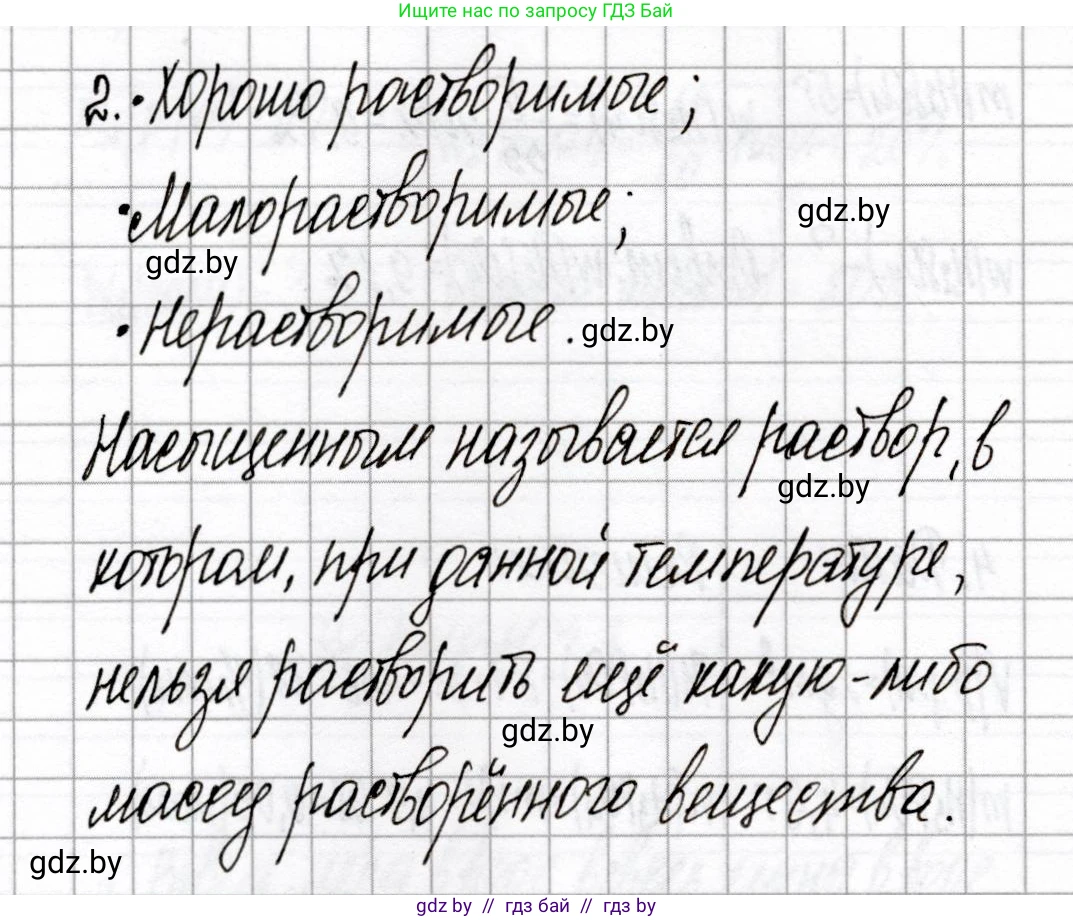 Ищите нас по запросу ГДЗ Бай
2. • Хорошо растворимые;
• Малорастворимые;
gdz.by
gdz.by
• Нерастворимые.
gdz.by
Насыщенным называется раствор, в
gdz.by
котором, при данной температуре,
нельзя растворить ещё какую-либо
gdz.by
массу растворённого вещества.
gdz.by
gdz.by // гдз бай // гдз by